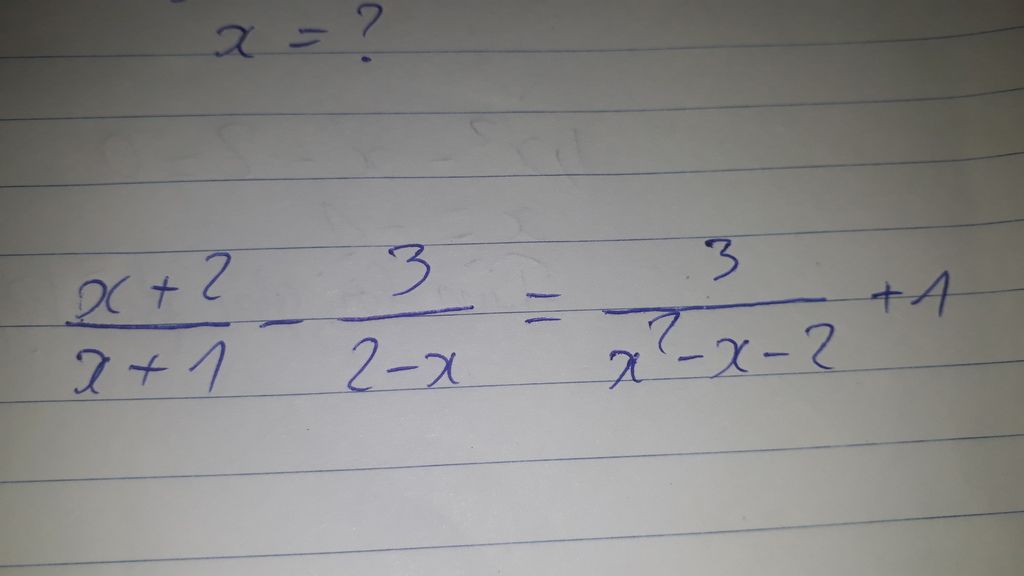 x = ?
x + 2 / x + 1 - 3 / 2 - x = 3 / x² - x - 2 + 1